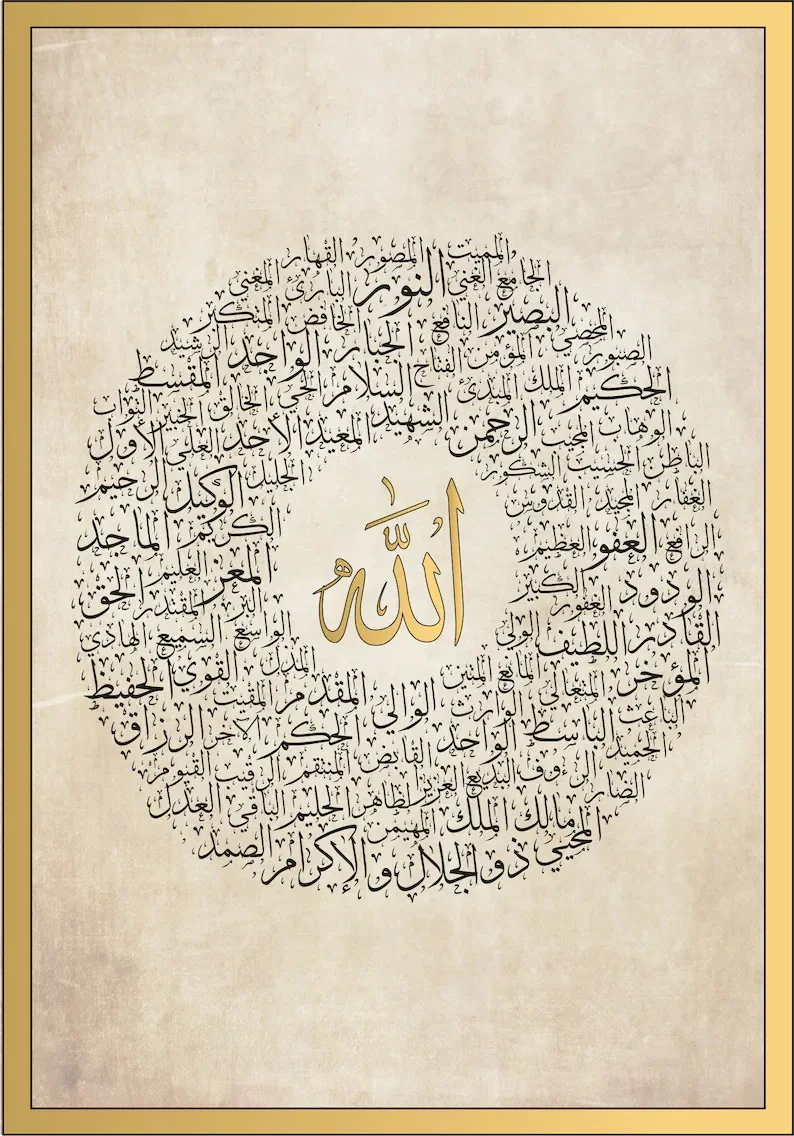 المميت المصور القهار
الجامع الغني النور البارئ المغني
المحصي البصير النافع الخافض المتكبر
الصبور المؤمن الفتاح الجبار الواحد الرشيد
الحكيم الملك المبدئ السلام الحي الخالق المقسط
الوهاب المجيب الرحمن الشهيد المعيد الأحد العلي الخبير التواب الأول
الباطن الحسيب الشكور الجليل الوكيل الرحيم
الغفار المجيد القدوس
الله
الرافع العفو العظيم الكريم الماجد
الودود الغفور الكبير المعز العليم الحق
القادر اللطيف الولي البر المقتدر
الواسع السميع الهادي
المؤخر المتعالي المانع المتين المذل القوي الحفيظ
الباعث الباسط الوارث الوالي المقدم المقيت
الحميد الواحد القابض الحكم الآخر الرزاق
الضار الرءوف البديع العزيز الظاهر المنتقم الرقيب القيوم
المحيي مالك الملك المهيمن الحليم الباقي العدل
ذو الجلال و الإكرام الصمد